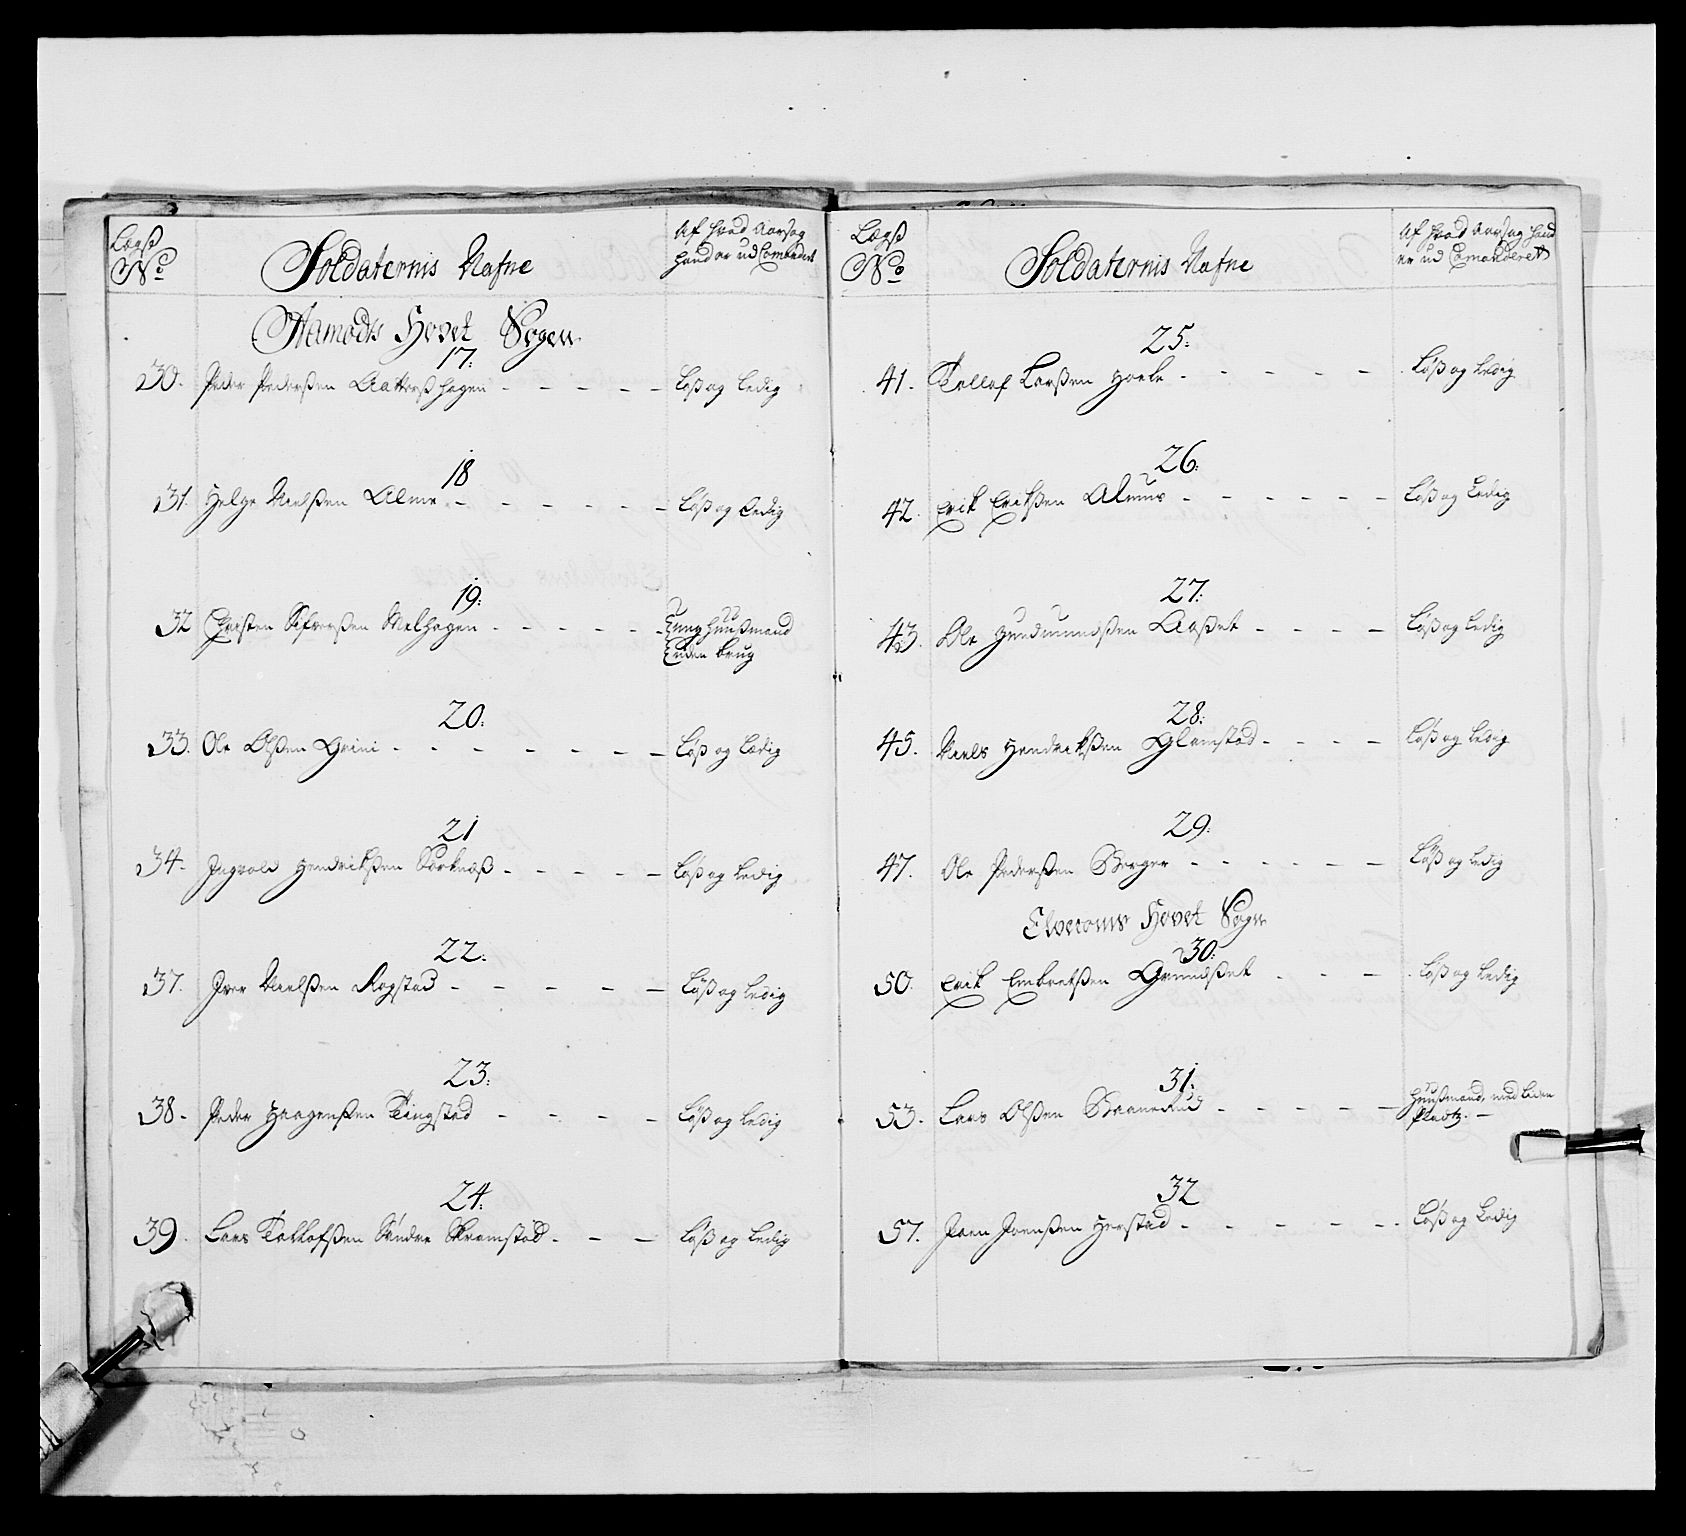 Lægs
No
Soldaternis Nafne
Af hvad Aarsag
hand er ud Comanderet
Aamodts Hovet Sogen
17:
30. Peder Pedersen Aakers hagen - - - - - Løs og Ledig
18
31. Helge Nielsen Alme - - - - - - Løs og Ledig
19:
32 Christen Sifversen Melhagen - - - - - - Ung Huusmand
uden brug
20:
33. Ole Olsen Grini - - - - - - - Løs og Lædig
21
34. Ingvold Hendriksen Sorknæs - - - - - Løs og Ledig
22:
37. Iver Nielsen Rogstad - - - - - Løs og Ledig
23:
38. Peder Haagensen Kingstad - - - - Løs og Ledig
24:
39. Lars Tollofsen Søndre Skramstad - - - Løs og Ledig
Lægs
No
Soldaternis Nafne
Af hvad Aarsag hand
er ud Comanderet
25:
41. Tollof Larsen Hoele - - - - - Løs og Ledig
26:
42. Erik Eriksen Alme - - - - - - Løs og Ledig
27:
43. Ole Gudmundsen Aaset - - - - Løs og Ledig
28:
45. Niels Hendriksen Glomstad - - - - Løs og Ledig
29:
47. Ole Pedersen Berger - - - - - - Løs og Ledig
Elveroms Hovet Sogn
30:
50. Erik Embretsen Grundset - - - Løs og Ledig
31:
53. Lars Olsen - - - - - Huusmand, med liden
Platz. -
32
57. Joen Joensen Herstad - - - - - Løs og Ledig